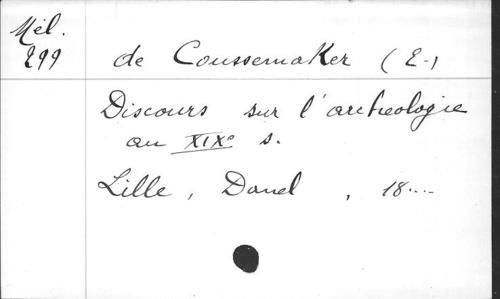 Mél.
299
de Coussemaker (E.)
Discours sur l'archeologie
au XIXe s.
Lille, Danel, 18....